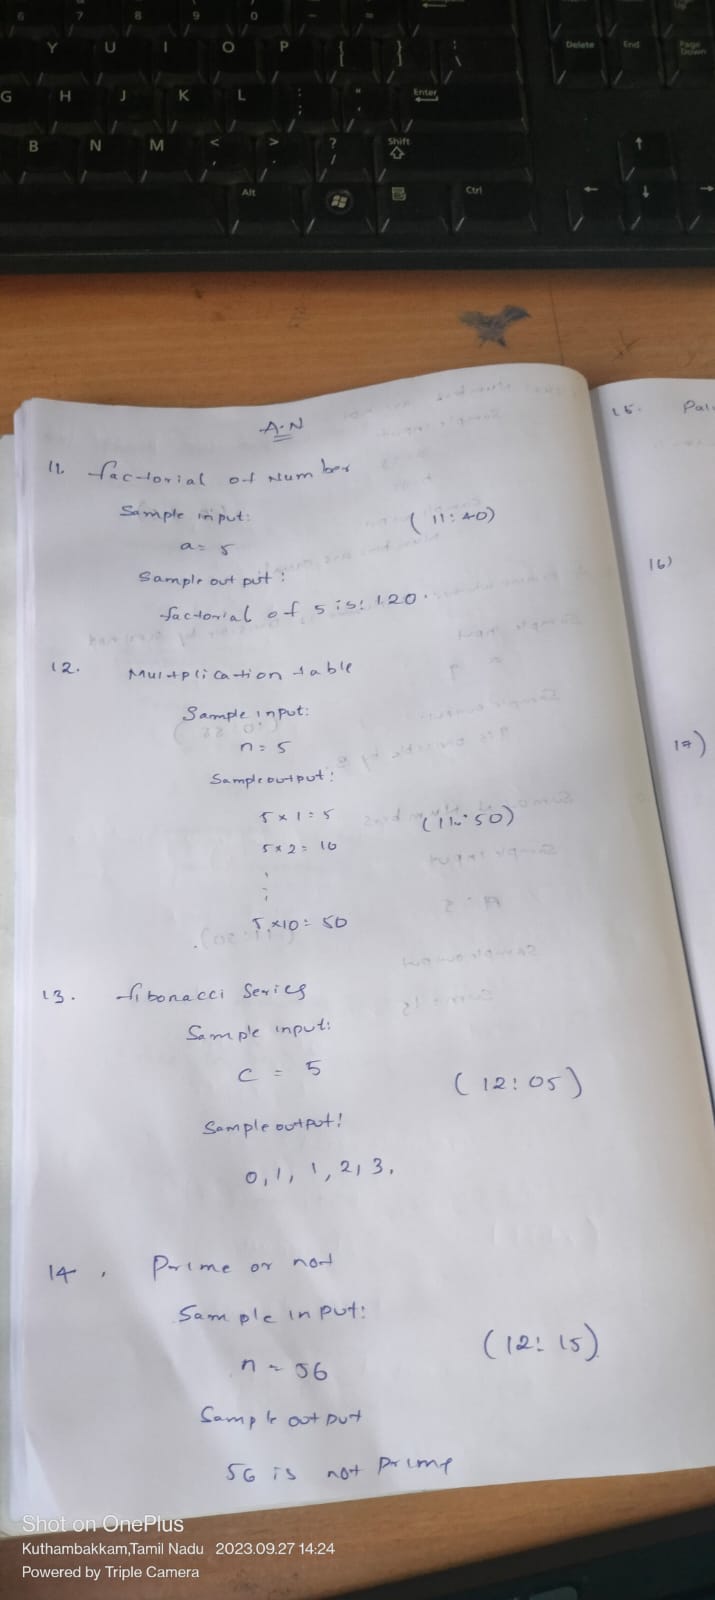 6 7 8 9 0
Y U I O P { }
Delete End Page Down
G H J K L Enter
B N M < > ? Shift
Alt Ctrl
A.N
11. factorial of Number
Sample input:
(11:40)
a= 5
Sample out put :
factorial of 5 is: 120.
12. Multplication table
Sample input:
n= 5
Sample output:
5 x 1 = 5
(11:50)
5 x 2 = 10
5 x10 = 50
13. fibonacci Series
Sample input:
c = 5
(12:05)
Sample output:
0, 1, 1, 2, 3,
14. Prime or not
Sample input:
(12:15)
n = 56
Sample out put
56 is not prime
15. Pal
16)
17)
Shot on OnePlus
Kuthambakkam,Tamil Nadu 2023.09.27 14:24
Powered by Triple Camera